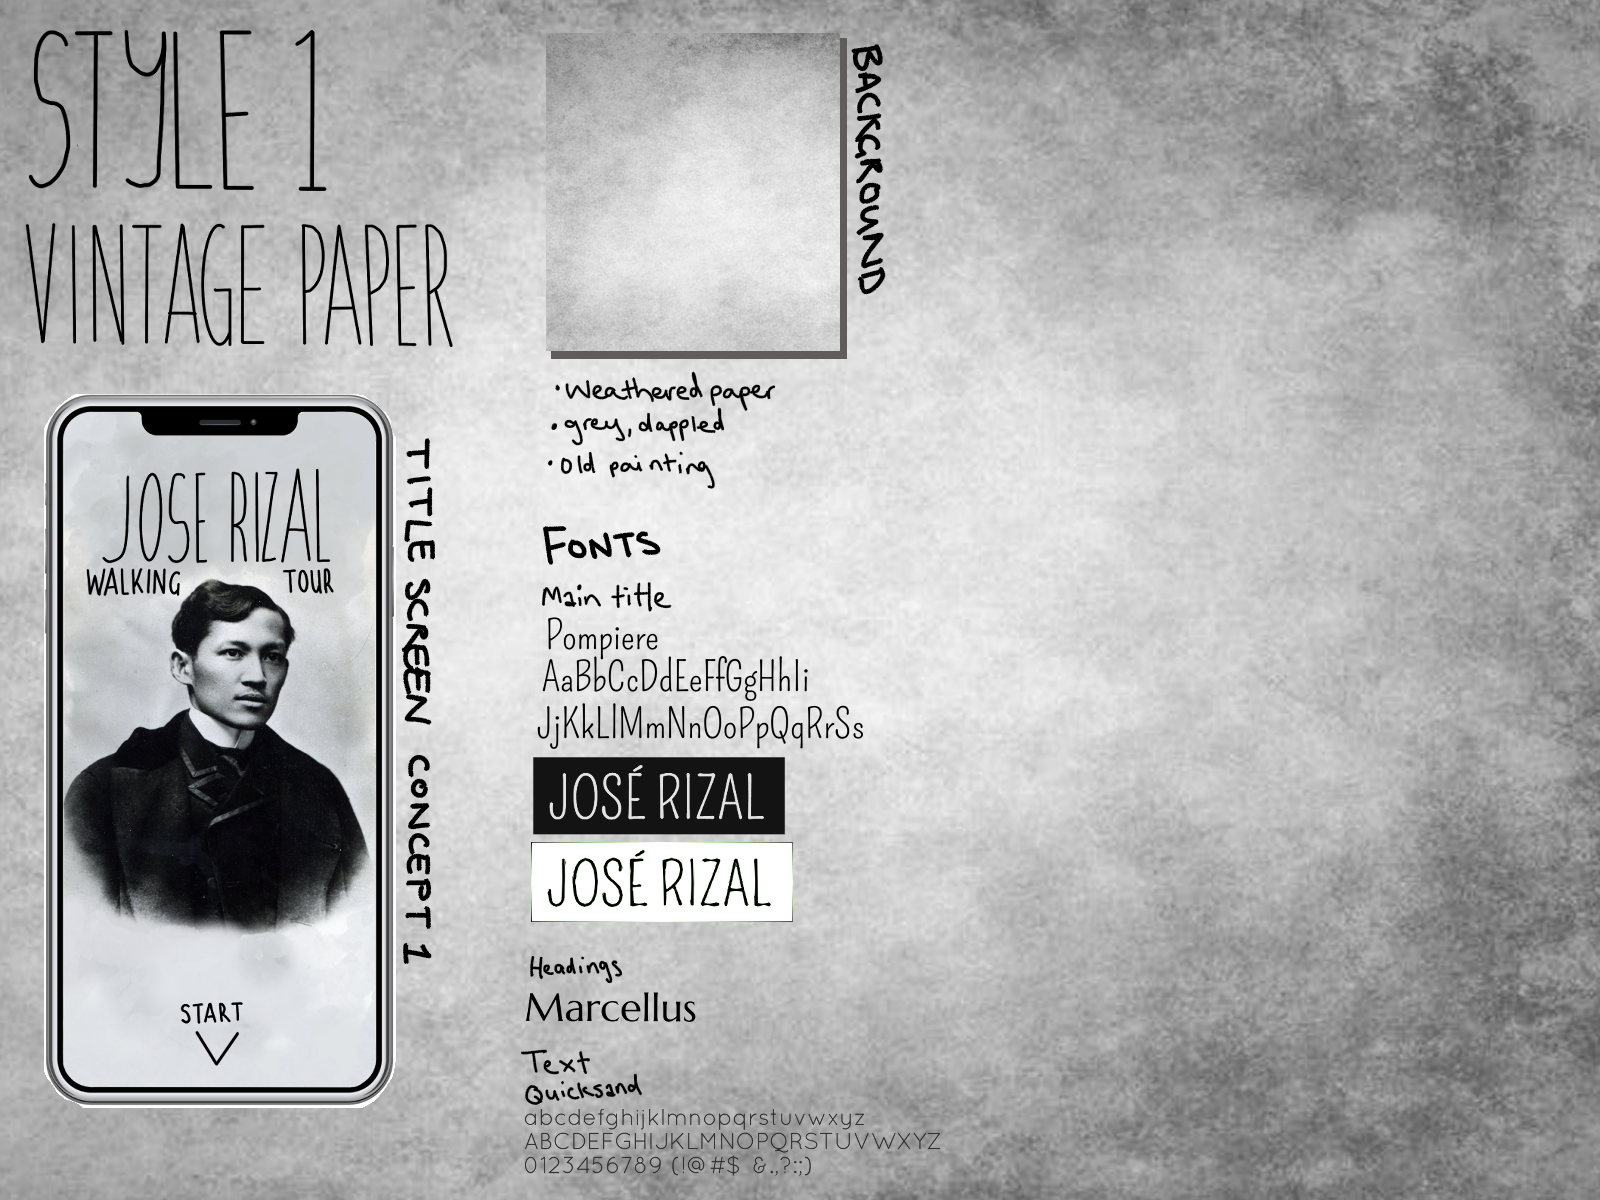 STYLE 1
VINTAGE PAPER
JOSE RIZAL
WALKING TOUR
START
TITLE SCREEN CONCEPT 1
BACKGROUND
• Weathered paper
• grey, dappled
• Old painting
FONTS
Main title
Pompiere
AaBbCcDdEeFfGgHhIi
JjKkLlMmNnOoPpQqRrSs
JOSÉ RIZAL
JOSÉ RIZAL
Headings
Marcellus
Text
Quicksand
abcdefghijklmnopqrstuvwxyz
ABCDEFGHIJKLMNOPQRSTUVWXYZ
0123456789 (!@#$ &.,?:;)